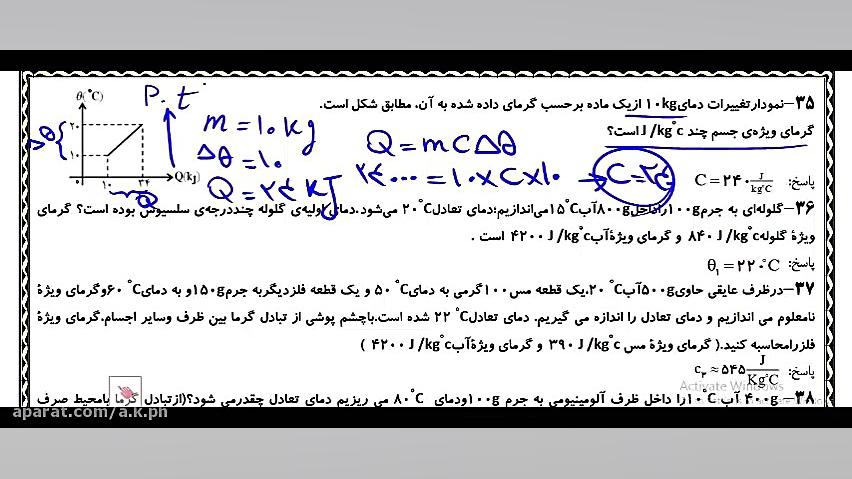 ۳۵–نمودارتغییرات دمای۱۰kg ازیک ماده برحسب گرمای داده شده به آن، مطابق شکل است.
گرمای ویژه‌ی جسم چند J/kg°c است؟
پاسخ: C = ۲۴۰ J/kg°C
θ(°C)
۲۰
۱۰
۰
۱۰
۳۴
Q(kJ)
Δθ
Q
P.t
m = ۱۰ kg
Δθ = ۱۰
Q = ۲۴ kJ
Q = mCΔθ
۲۴۰۰۰ = ۱۰ × C × ۱۰ → C = ۲۴۰
۳۶–گلوله‌ای به جرم۱۰۰gراداخل۸۰۰gآب۱۵°Cمی‌اندازیم؛دمای تعادل۲۰°C می‌شود.دمای اولیه‌ی گلوله چنددرجه‌ی سلسیوس بوده است؟ گرمای
ویژهٔ گلوله۸۴۰ J/kg°c و گرمای ویژهٔ آب۴۲۰۰ J/kg°c است .
پاسخ: θ₁ = ۲۲۰°C
۳۷–درظرف عایقی حاوی۵۰۰gآب۲۰°C،یک قطعه مس۱۰۰گرمی به دمای۵۰°C و یک قطعه فلزدیگربه جرم۱۵۰gو به دمای۶۰°Cوگرمای ویژهٔ
نامعلوم می اندازیم و دمای تعادل را اندازه می گیریم. دمای تعادل۲۲°C شده است.باچشم پوشی از تبادل گرما بین ظرف وسایر اجسام،گرمای ویژهٔ
فلزرامحاسبه کنید.( گرمای ویژهٔ مس ۳۹۰ J/kg°c و گرمای ویژهٔ آب۴۲۰۰ J/kg°c )
پاسخ: c₃ ≈ ۵۴۵ J/Kg°C
Activate Windows
۳۸–۴۰۰g آب ۱۰°Cرا داخل ظرف آلومینیومی به جرم ۱۰۰gودمای ۸۰°C می ریزیم دمای تعادل چقدرمی شود؟(ازتبادل گرما بامحیط صرف
aparat.com/a.k.ph